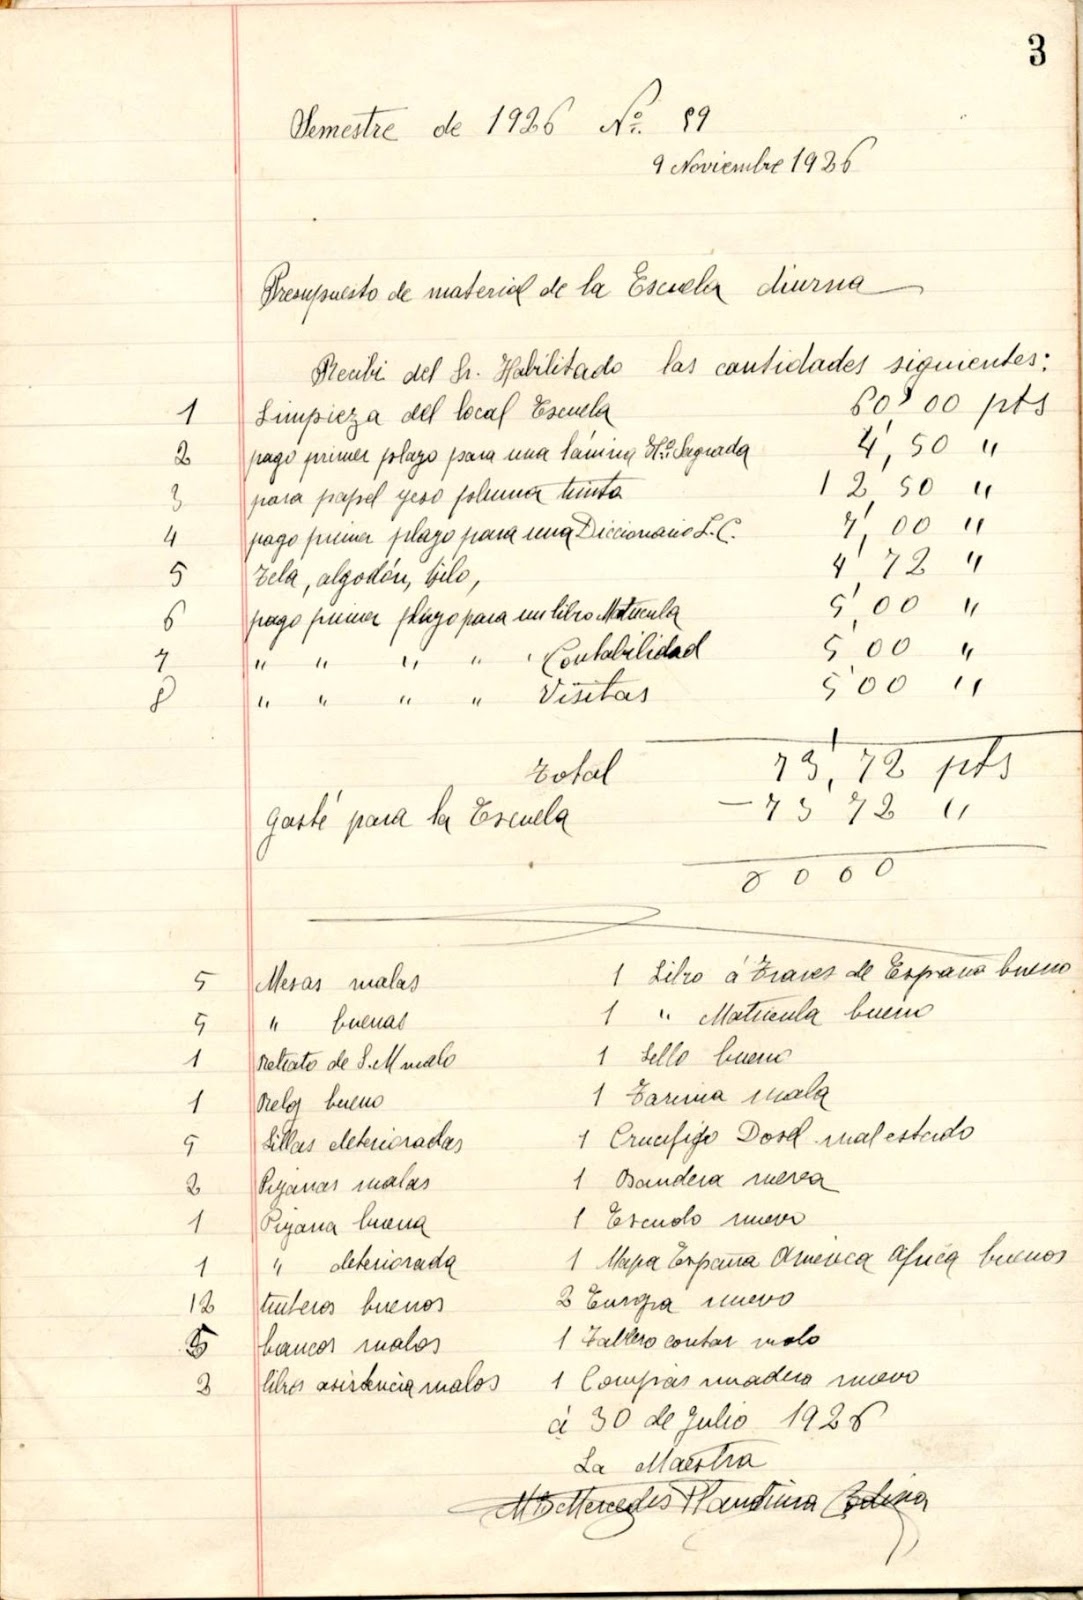 3
Semestre de 1926 Nº. 59
9 Noviembre 1926
Presupuesto de material de la Escuela diurna
Recibi del Sr. Habilitado las cantidades siguientes:
1 Limpieza del local Escuela 60'00 pts
2 pago primer plazo para una lámina Hª Sagrada 4,50 "
3 para papel yeso pluma tinta 12,50 "
4 pago primer plazo para una Diccionario L.C. 7,00 "
5 Tela, algodón, hilo, 4'72 "
6 pago primer plazo para un libro Matricula 5,00 "
7 " " " " Contabilidad 5 00 "
8 " " " " Visitas 5'00 "
Total 73,72 pts
gasté para la Escuela – 73 72 "
0 0 0 0
5 Mesas malas
5 " buenas
1 Retrato de S.M malo
1 Reloj bueno
5 Sillas deterioradas
2 Pizarras malas
1 Pizarra buena
1 " deteriorada
12 tinteros buenos
5 bancos malos
2 libros asistencia malos
1 Libro á Traves de España bueno
1 " Matricula bueno
1 Sello bueno
1 Tarima mala
1 Crucifijo Dosel mal estado
1 Bandera nueva
1 Escudo nuevo
1 Mapa España America Africa buenos
2 Europa nuevo
1 Tablero contar malo
1 Compás madera nuevo
á 30 de Julio 1926
La Maestra
Mª Mercedes Plandiura